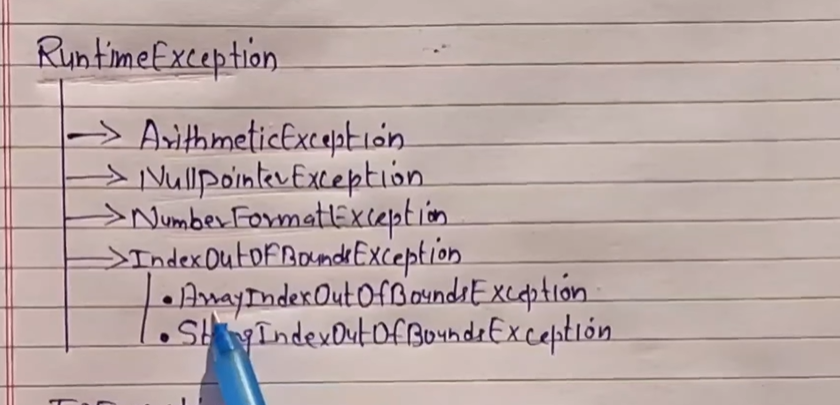 RuntimeException
→ ArithmeticException
→ NullpointerException
→ NumberFormatException
→ IndexOutOfBoundsException
• ArrayIndexOutOfBoundsException
• StringIndexOutOfBoundsException